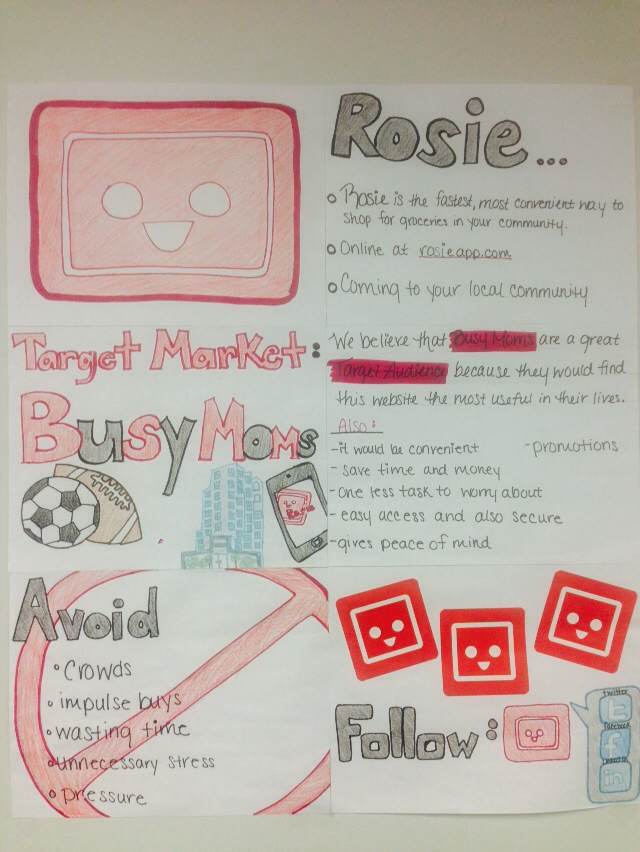 Rosie...
Rosie is the fastest, most convenient way to
shop for groceries in your community.
Online at rosieapp.com
Coming to your local community
Target Market:
Busy Moms
Rosie
We believe that Busy Moms are a great
Target Audience because they would find
this website the most useful in their lives.
Also:
-it would be convenient
-promotions
- save time and money
-one less task to worry about
- easy access and also secure
-gives peace of mind
Avoid
• Crowds
• impulse buys
• wasting time
• unnecessary stress
• pressure
Follow:
twitter
t
facebook
f
LinkedIn
in